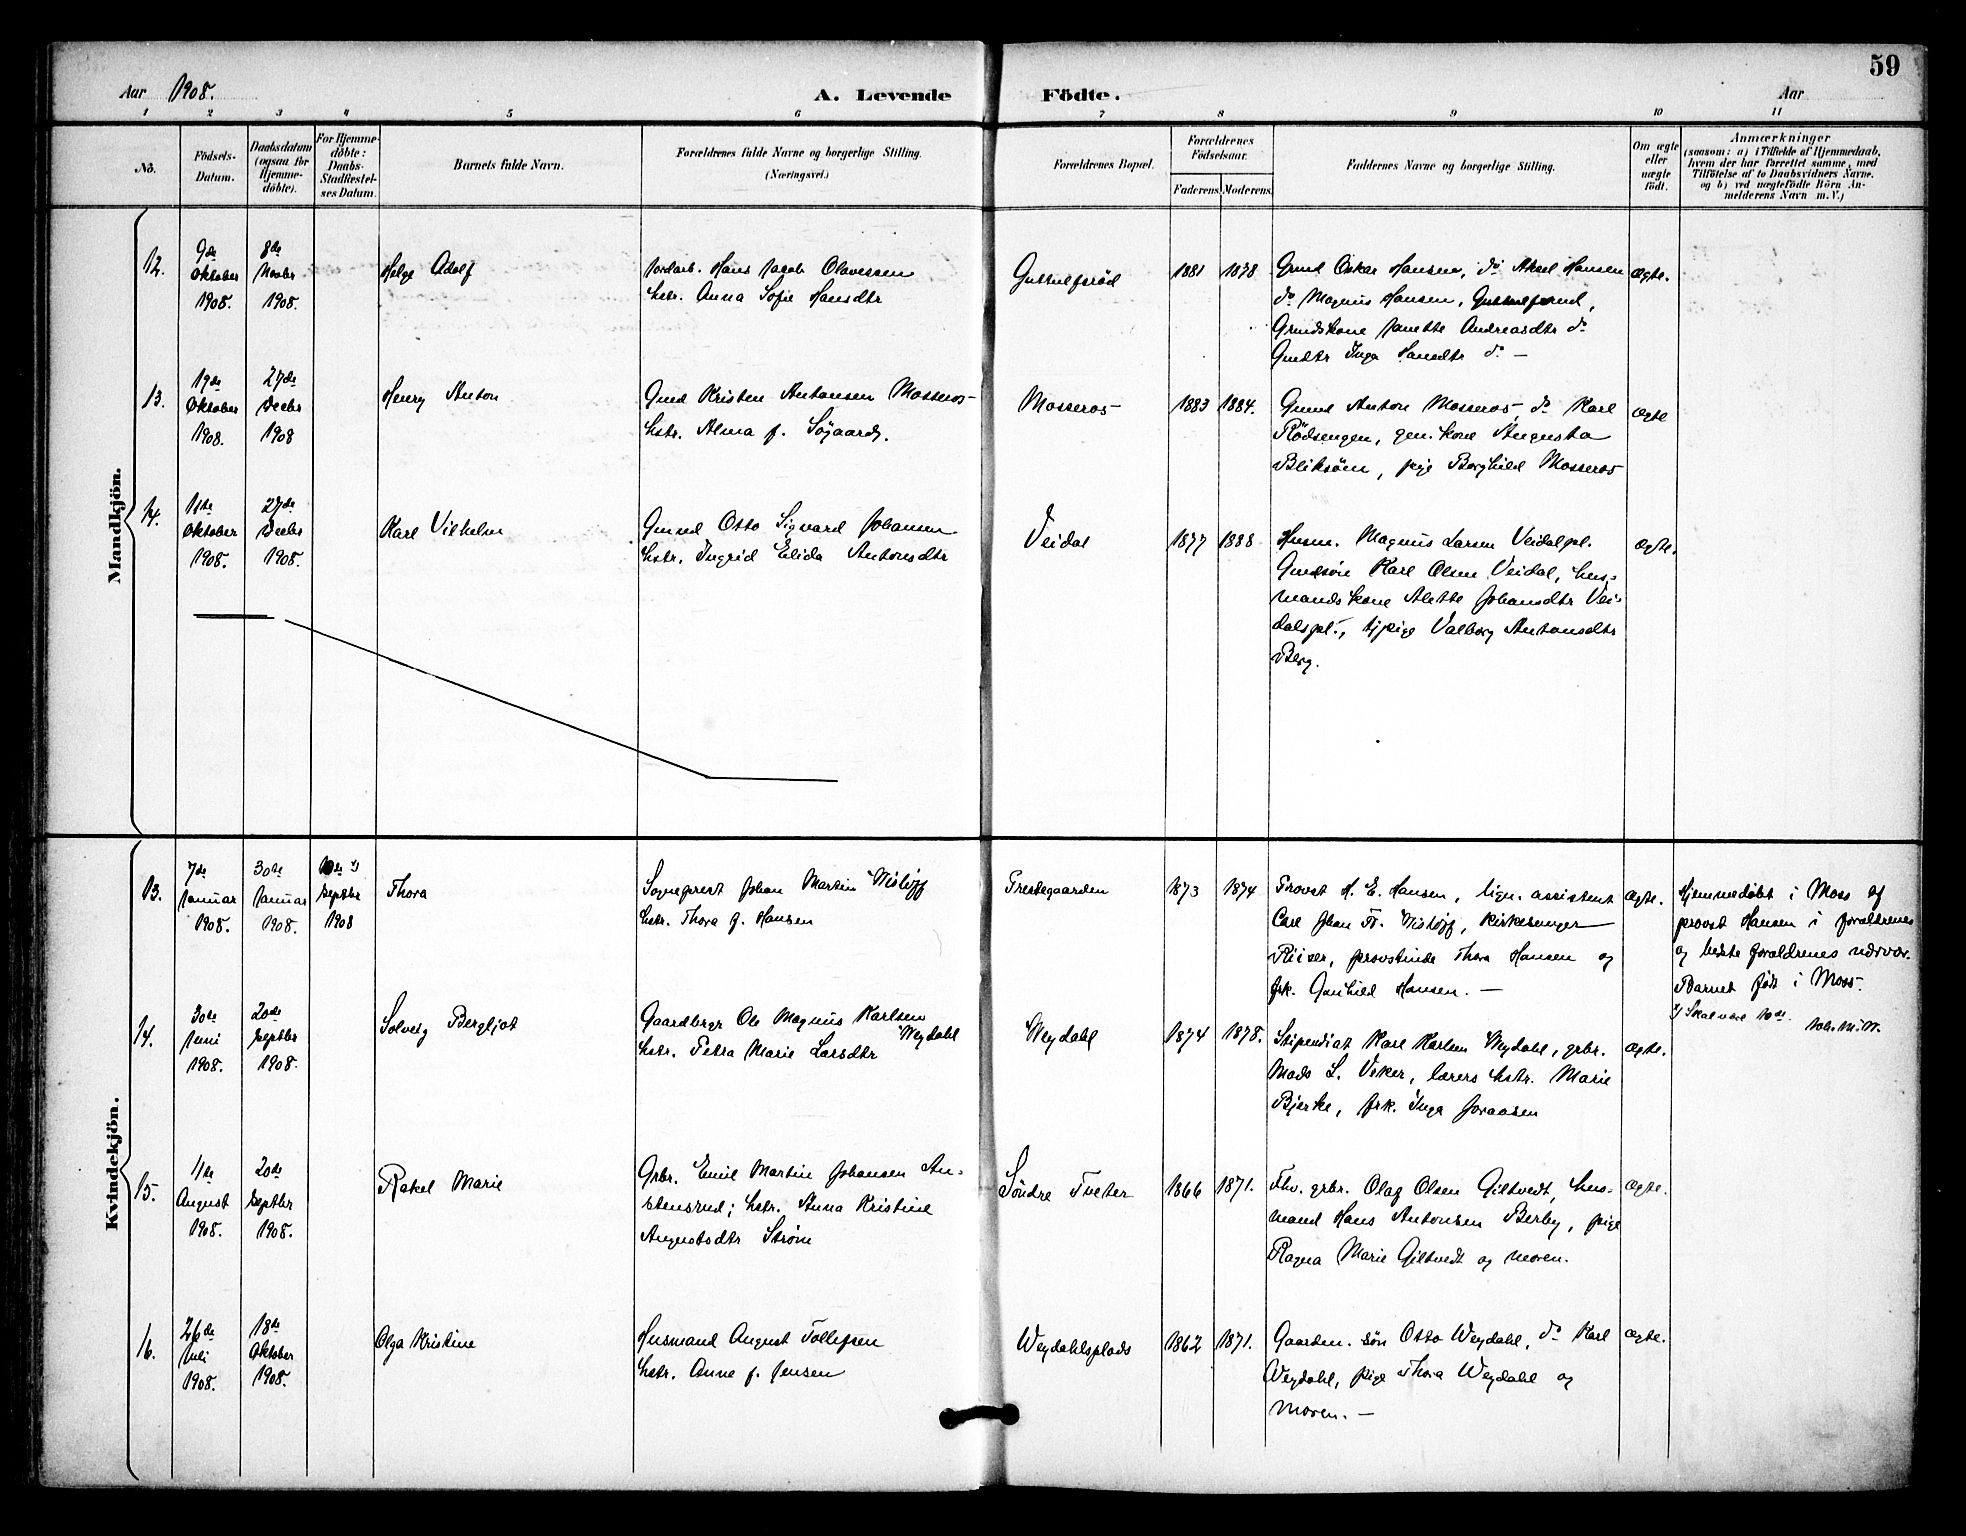 59
Aar 1908.
A. Levende Födte.
Aar
1 2 3 4 5 6 7 8 9 10 11
No.
Födsels-Datum.
Daabsdatum (ogsaa for Hjemme-döbte).
For Hjemme-döbte: Daabs-Stadfæstel-ses Datum.
Barnets fulde Navn.
Forældrenes fulde Navne og borgerlige Stilling. (Næringsvei.)
Forældrenes Bopæl.
Forældrenes Födselsaar.
Faderens. Moderens.
Faddernes Navne og borgerlige Stilling.
Om ægte eller uægte födt.
Anmærkninger
(saasom: a) i Tilfælde af Hjemmedaab, hvem der har forrettet samme, med Tilföielse af to Daabsvidners Navne, og b) ved uægtefödte Börn An-melderens Navn m.V.)
Mandkjön.
12.
9de Oktober 1908.
8de Novbr 1908.
Helge Adolf
Jordarb. Hans Jacob Olavessen
hstr. Anna Sofie Hansdtr
Guttulfsrød
1881 1878
Grmd Oskar Hansen, do Aksel Hansen
do Magnus Hansen,
Grmdskone Janette Andreasdtr do
Grmdtr Inga Hansdtr do —
ægte.
13.
19de Oktober 1908.
27de Decbr 1908
Henry Anton
Grmd Kristen Antonsen Mosseros
hstr. Alma f. Søgaard.
Mosseros
1883 1884.
Grmd Anton Mosseros, do Karl
Rødsengen, gm. kone Augusta
Bliksøm, pige Borghild Mosseros
ægte
14.
11te Oktober 1908.
27de Decbr 1908.
Karl Vilhelm
Grmd Otto Sigvard Johansen
hstr. Ingrid Elida Antonsdtr
Veidal
1877 1888
Husm. Magnus Larsen Veidalspl.
Grmdsøn Karl Olsen Veidal, hus-
mandskone Alette Johansdtr Vei-
dalspl., tjpige Valborg Antonsdtr
Berg.
ægte.
Kvindekjön.
13.
7de Januar 1908.
30de Januar 1908.
Septbr 1908
Thora
Sogneprest Johan Martin Wisløff
hstr. Thora f. Hansen
Prestegaarden
1873 1874
Provst H. E. Hansen, lign. assistent
Carl Johan Fr. Wisløff, kirkesanger
Riiser, provstinde Thora Hansen og
frk. Gunhild Hansen. —
ægte.
Hjemmedøbt i Moss af
provst Hansen i forældrenes
og bedsteforældrenes nærvær.
Barnet født i Moss.
1) Skal være 20de. Joh. M. W.
14.
30de Juni 1908.
20de Septbr 1908.
Solveig Bergljot
Gaardbrgr Ole Magnus Karlsen
Weydahl
hstr. Petra Marie Larsdtr
Weydahl
1874 1878.
Stipendiat Karl Karlsen Weydahl, grbr.
Mads L. Viker, lærers hstr. Marie
Bjerke, frk. Inga Joraasen
ægte.
15.
11te August 1908.
20de Septbr 1908.
Rakel Marie
Grbr. Emil Martin Johansen An-
stensrud; hstr. Anna Kristine
Augustsdtr Strøm
Søndre Tveter
1866 1871.
Fhv. grbr. Olaf Olsen Giltvedt, hus-
mand Hans Antonsen Berby, pige
Ragna Marie Giltvedt og moren.
ægte.
16.
26de Juli 1908.
18de Oktober 1908.
Olga Kristine
Husmand August Tollefsen
hstr. Anne f. Jensen
Weydahlsplads
1862 1871.
Gaardm. søn Otto Weydahl, do Karl
Weydahl, pige Thora Weydahl og
moren. —
ægte.